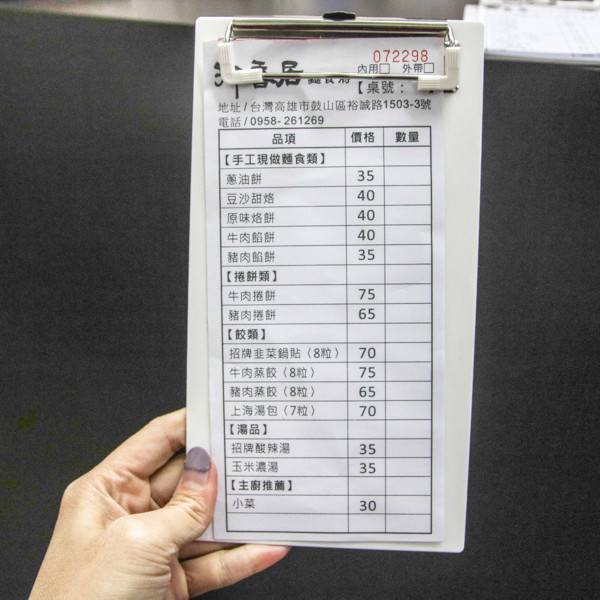 072298
香居 麵食
內用□ 外帶□
【桌號：
地址/台灣高雄市鼓山區裕誠路1503-3號
電話/0958-261269
品項 價格 數量
【手工現做麵食類】
蔥油餅 35
豆沙甜烙 40
原味烙餅 40
牛肉餡餅 40
豬肉餡餅 35
【捲餅類】
牛肉捲餅 75
豬肉捲餅 65
【餃類】
招牌韭菜鍋貼（8粒） 70
牛肉蒸餃（8粒） 75
豬肉蒸餃（8粒） 65
上海湯包（7粒） 70
【湯品】
招牌酸辣湯 35
玉米濃湯 35
【主廚推薦】
小菜 30